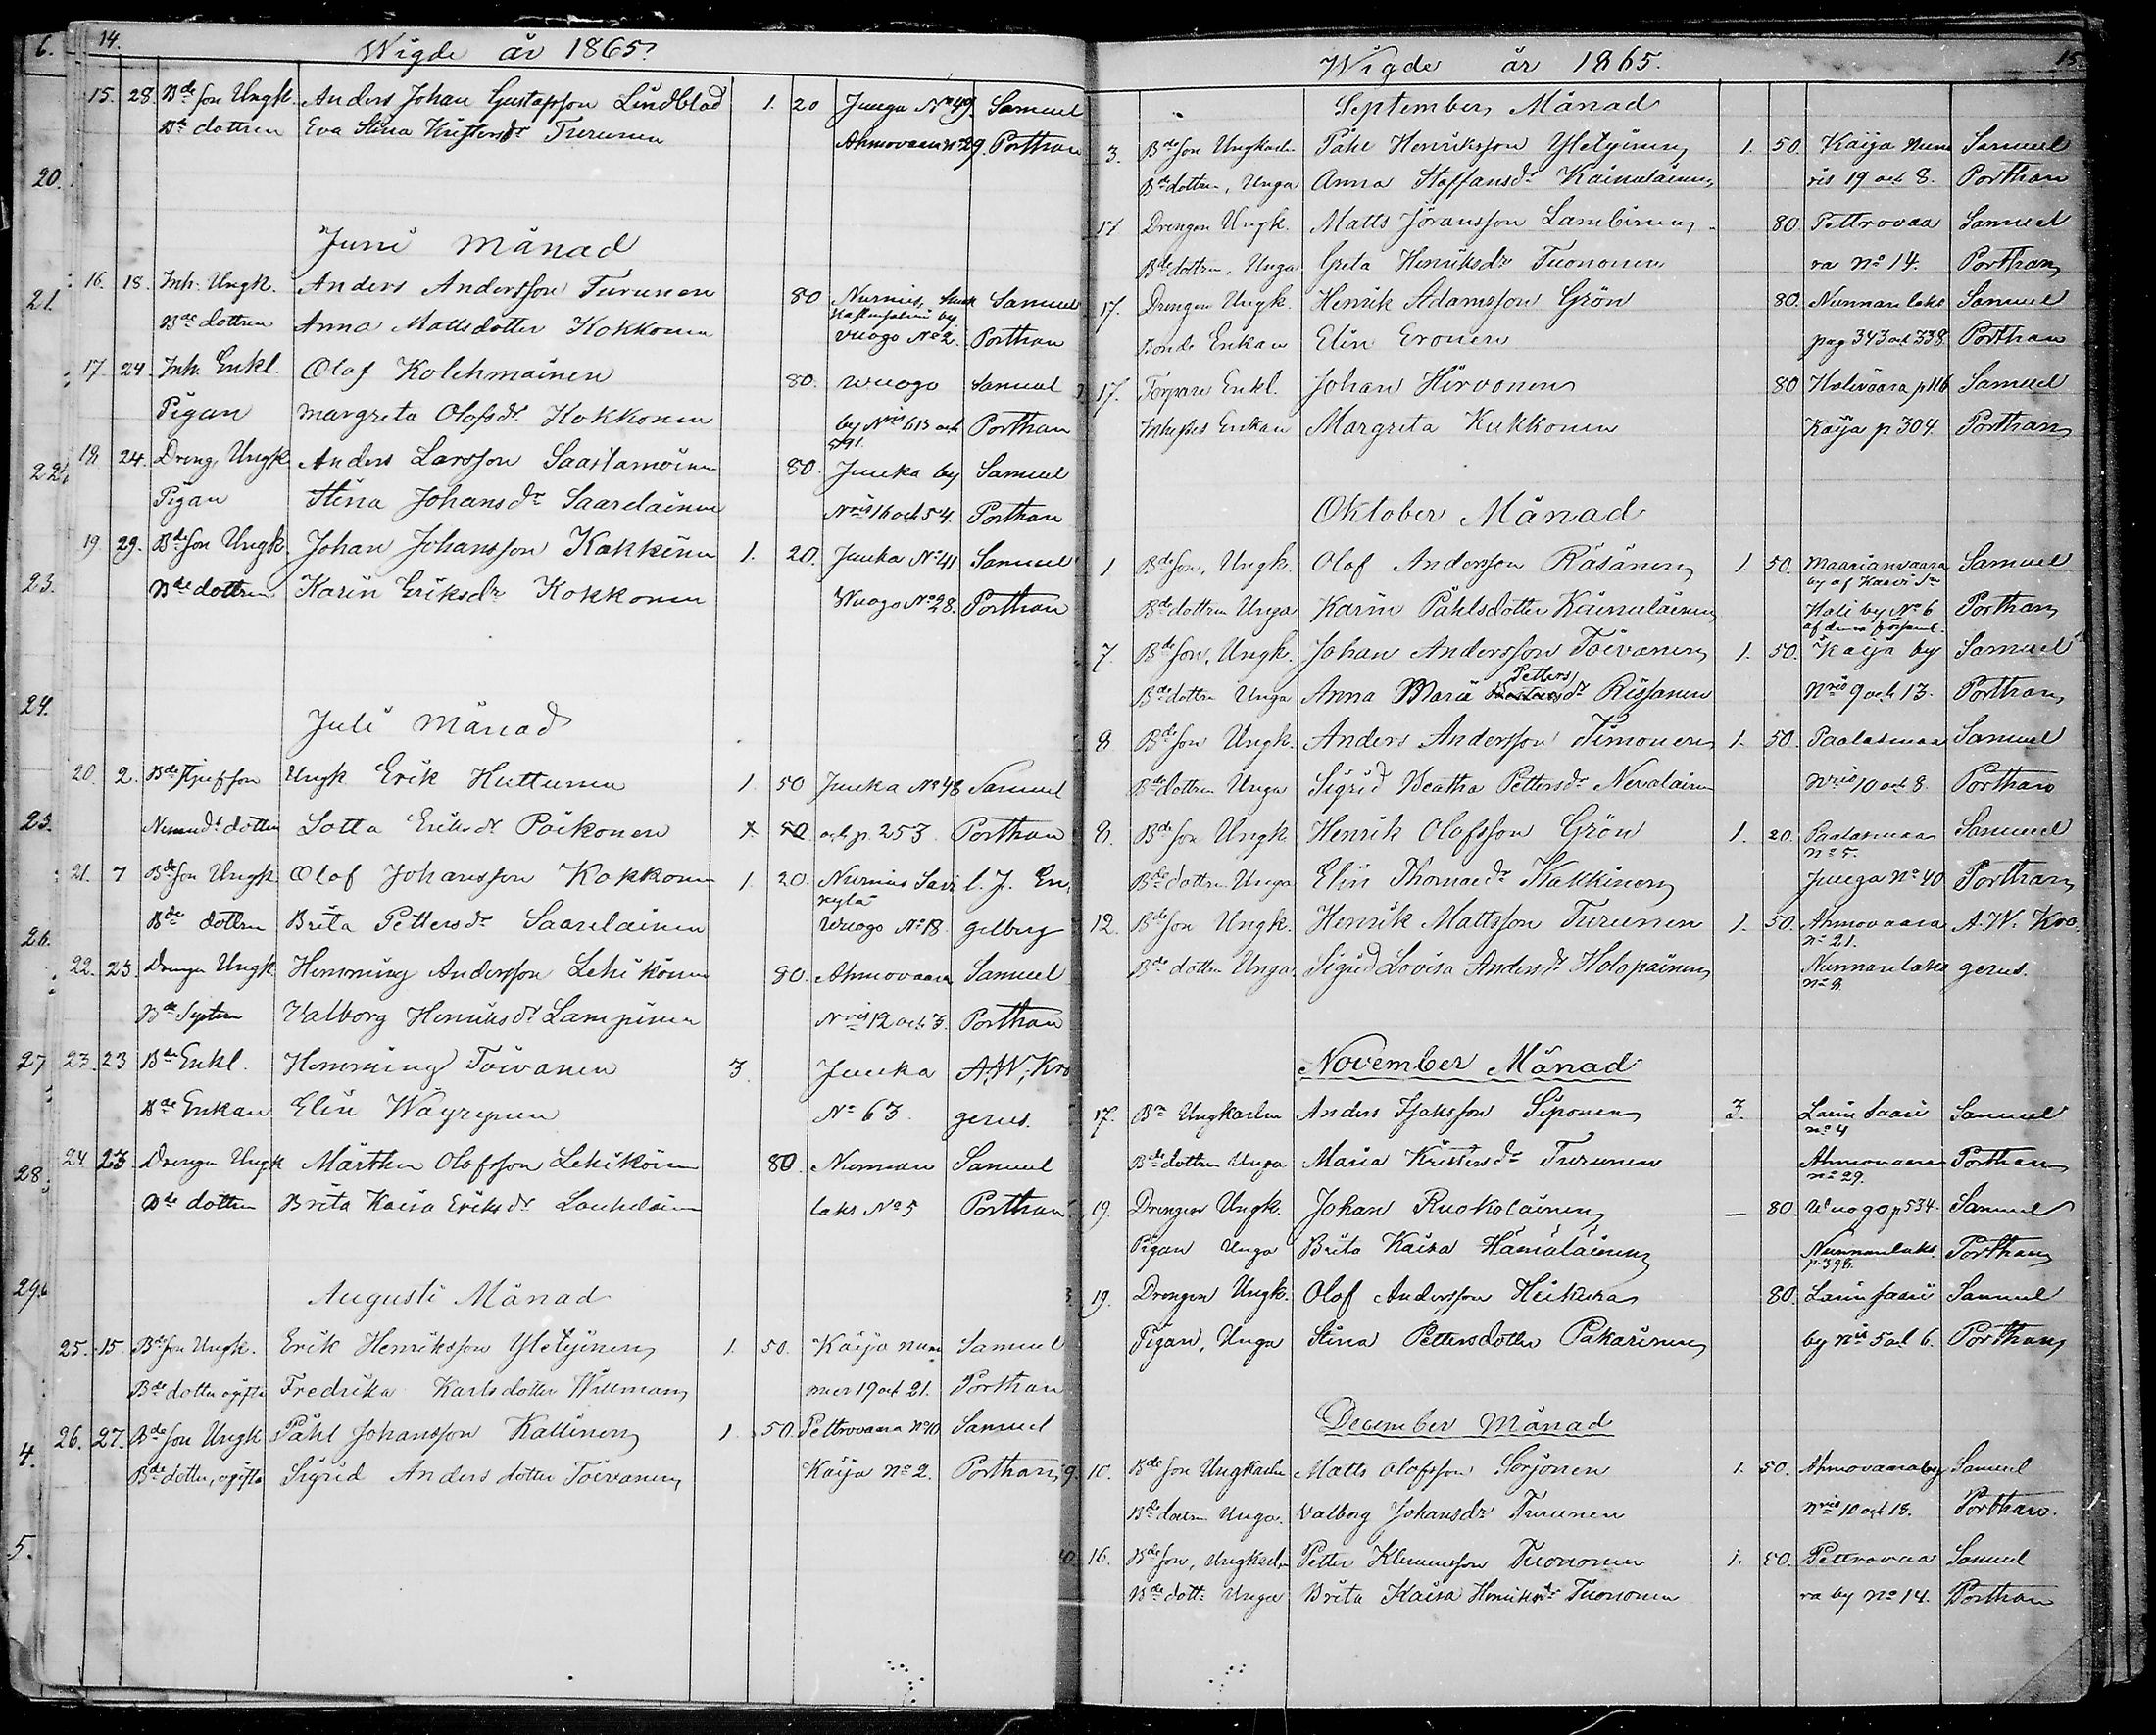 14.
Wigde år 1865.
15. 28. Bde son Ungk. Anders Johan Gustafsson Lindblad 1. 20 Juuga No 49. Samuel
Bde dottren Eva Stina Kristersdr Turunen Ahmovaara No 29. Porthan
Juni Månad
16. 18. Inh. Ungk. Anders Andersson Turunen 80 Nurmis, Samuel
Bde dottren Anna Mattsdotter Kokkonen Wuogo No 2. Porthan
17. 24. Inh. Enkl. Olof Kolehmainen 80. Wuogo Samuel
Pigan Margreta Olofsdr Kokkonen by Nris 613 och Porthan
18. 24. Dreng, Ungk. Anders Larsson Saastamoinen 80. Juuka by Samuel
Pigan Stina Johansdr Saarelainen Nris 16 och 54. Porthan
19. 29. Bde son Ungk. Johan Johansson Kakkinen 1. 20. Juuka No 41. Samuel
Bde dottren Karin Eriksdr Kokkonen Wuogo No 28. Porthan
Juli Månad
20. 2. Bde Styfson Ungk Erik Huttunen 1. 50 Juuka No 48 Samuel
Nemndn dotter Lotta Eriksdr Poikonen 1. 50. och p. 253. Porthan
21. 7 Bde son Ungk. Olof Johansson Kokkonen 1. 20. Nurmis Savi l. J. En
kylä
Bde dottren Brita Pettersdr Saarelainen Wuogo No 18. gelberg
22. 23. Drengen Ungk Hemming Andersson Lehikoinen 80. Ahmovaara Samuel
Bde Systern Valborg Henriksdr Lampinen Nris 12 och 3. Porthan
23. 23 Bde Enkl. Hemming Toivanen 3. Juuka A. W. Kro
Bde Enkan Elin Wäyrynen No 63. gerus.
24 23 Drengen Ungk Mårthen Olofsson Lehikoinen 80. Nunnan Samuel
Bde dotter Brita Kaisa Eriksdr Louhelainen laks No 5 Porthan
Augusti Månad
25. 15. Bde son Ungk. Erik Henriksson Yletyinen 1. 50. Kaija num Samuel
Bde dotter ogifta Fredrika Karlsdotter Willman mer 19 och 21. Porthan
26. 27. Bde son Ungk Påhl Johansson Kattinen 1 50. Pettrovaara No 10 Samuel
Bde dotter, ogifta Sigrid Anders dotter Toivanen Kaija No 2. Porthan
6.
20.
21.
22.
23.
24.
25.
26.
27
28
29.
4.
5.
15.
Wigde år 1865.
September Månad
3. Bde son Ungkarln Påhl Henriksson Yletyinen 1. 50. Kaija Num Samuel
Bde dottren, Unga Anna Staffansdr Kainulainen ris 19 och 8. Porthan
17 Drengen Ungk. Matts Jöransson Lambinen 80 Pettrovaa Samuel
Bde dottren, Unga Greta Henriksdr Tuononen ra No 14. Porthan
17. Drengen Ungk. Henrik Adamsson Grön 80. Nunnanlaks Samuel
Bonde Enkan Elin Eronen pag 343 och 338 Porthan
17. Torpare Enkl. Johan Hirvonen 80 Halivaara p 116 Samuel
Inhyses Enkan Margreta Kukkonen Kaija p 304. Porthan
Oktober Månad
1 Bde son, Ungk. Olof Andersson Räsänen 1. 50. Maarianvaara Samuel
by af Kaavi
Bde dottren Unga Karin Påhlsdotter Kainulainen Koli by No 6 Porthan
af denna församl.
7. Bde son, Ungk. Johan Andersson Toivanen 1. 50. Kaija by Samuel
Petters
Bde dottren Unga Anna Maria dr Rissanen Nris 9 och 13. Porthan
8 Bde son Ungk. Anders Andersson Timonen 1. 50. Paalasmaa Samuel
Bde dottren Unga Sigrid Beatha Pettersdr Nevalainen Nris 10 och 8. Porthan
8. Bde son Ungk. Henrik Olofsson Grön 1. 20. Paalasmaa Samuel
No 5.
Bde dottren Unga Elin Thomædr Kakkinen Juuga No 40 Porthan
12. Bde son Ungk. Henrik Mattsson Turunen 1. 50. Ahmovaara A. W. Kro
No 21.
Bde dottren Unga Sigrid Lovisa Anders dr Holopainen Nunnanlaks gerus.
No 8
November Månad
17. Bn Ungkarlen Anders Isaksson Siponen 3. Larin Saari Samuel
No 4
Bde dottren Unga Maria Kristersdr Turunen Ahmovaara Porthan
No 29.
19. Drengen Ungk. Johan Ruokolainen — 80. Wuogo p 534. Samuel
Pigan Unga Brita Kaisa Hämäläinen Nunnanlaks Porthan
p. 398.
19. Drengen Ungk. Olof Andersson Heikura 80. Larinsaari Samuel
Pigan, Unga Stina Pettersdotter Pakarinen by Nis 5 och 6. Porthan
December Månad
10. Bde son Ungkarln Matts Olofsson Sorjonen 1. 50. Ahmovaara by Samuel
Bde dottren Unga. Valborg Johansdr Turunen Nris 10 och 18. Porthan.
16. Bde son, Ungkarln Petter Klemensson Tuononen 1. 50. Pettrovaa Samuel
Bde dott: Unga Brita Kaisa Henriksdr Tuononen ra by No 14. Porthan